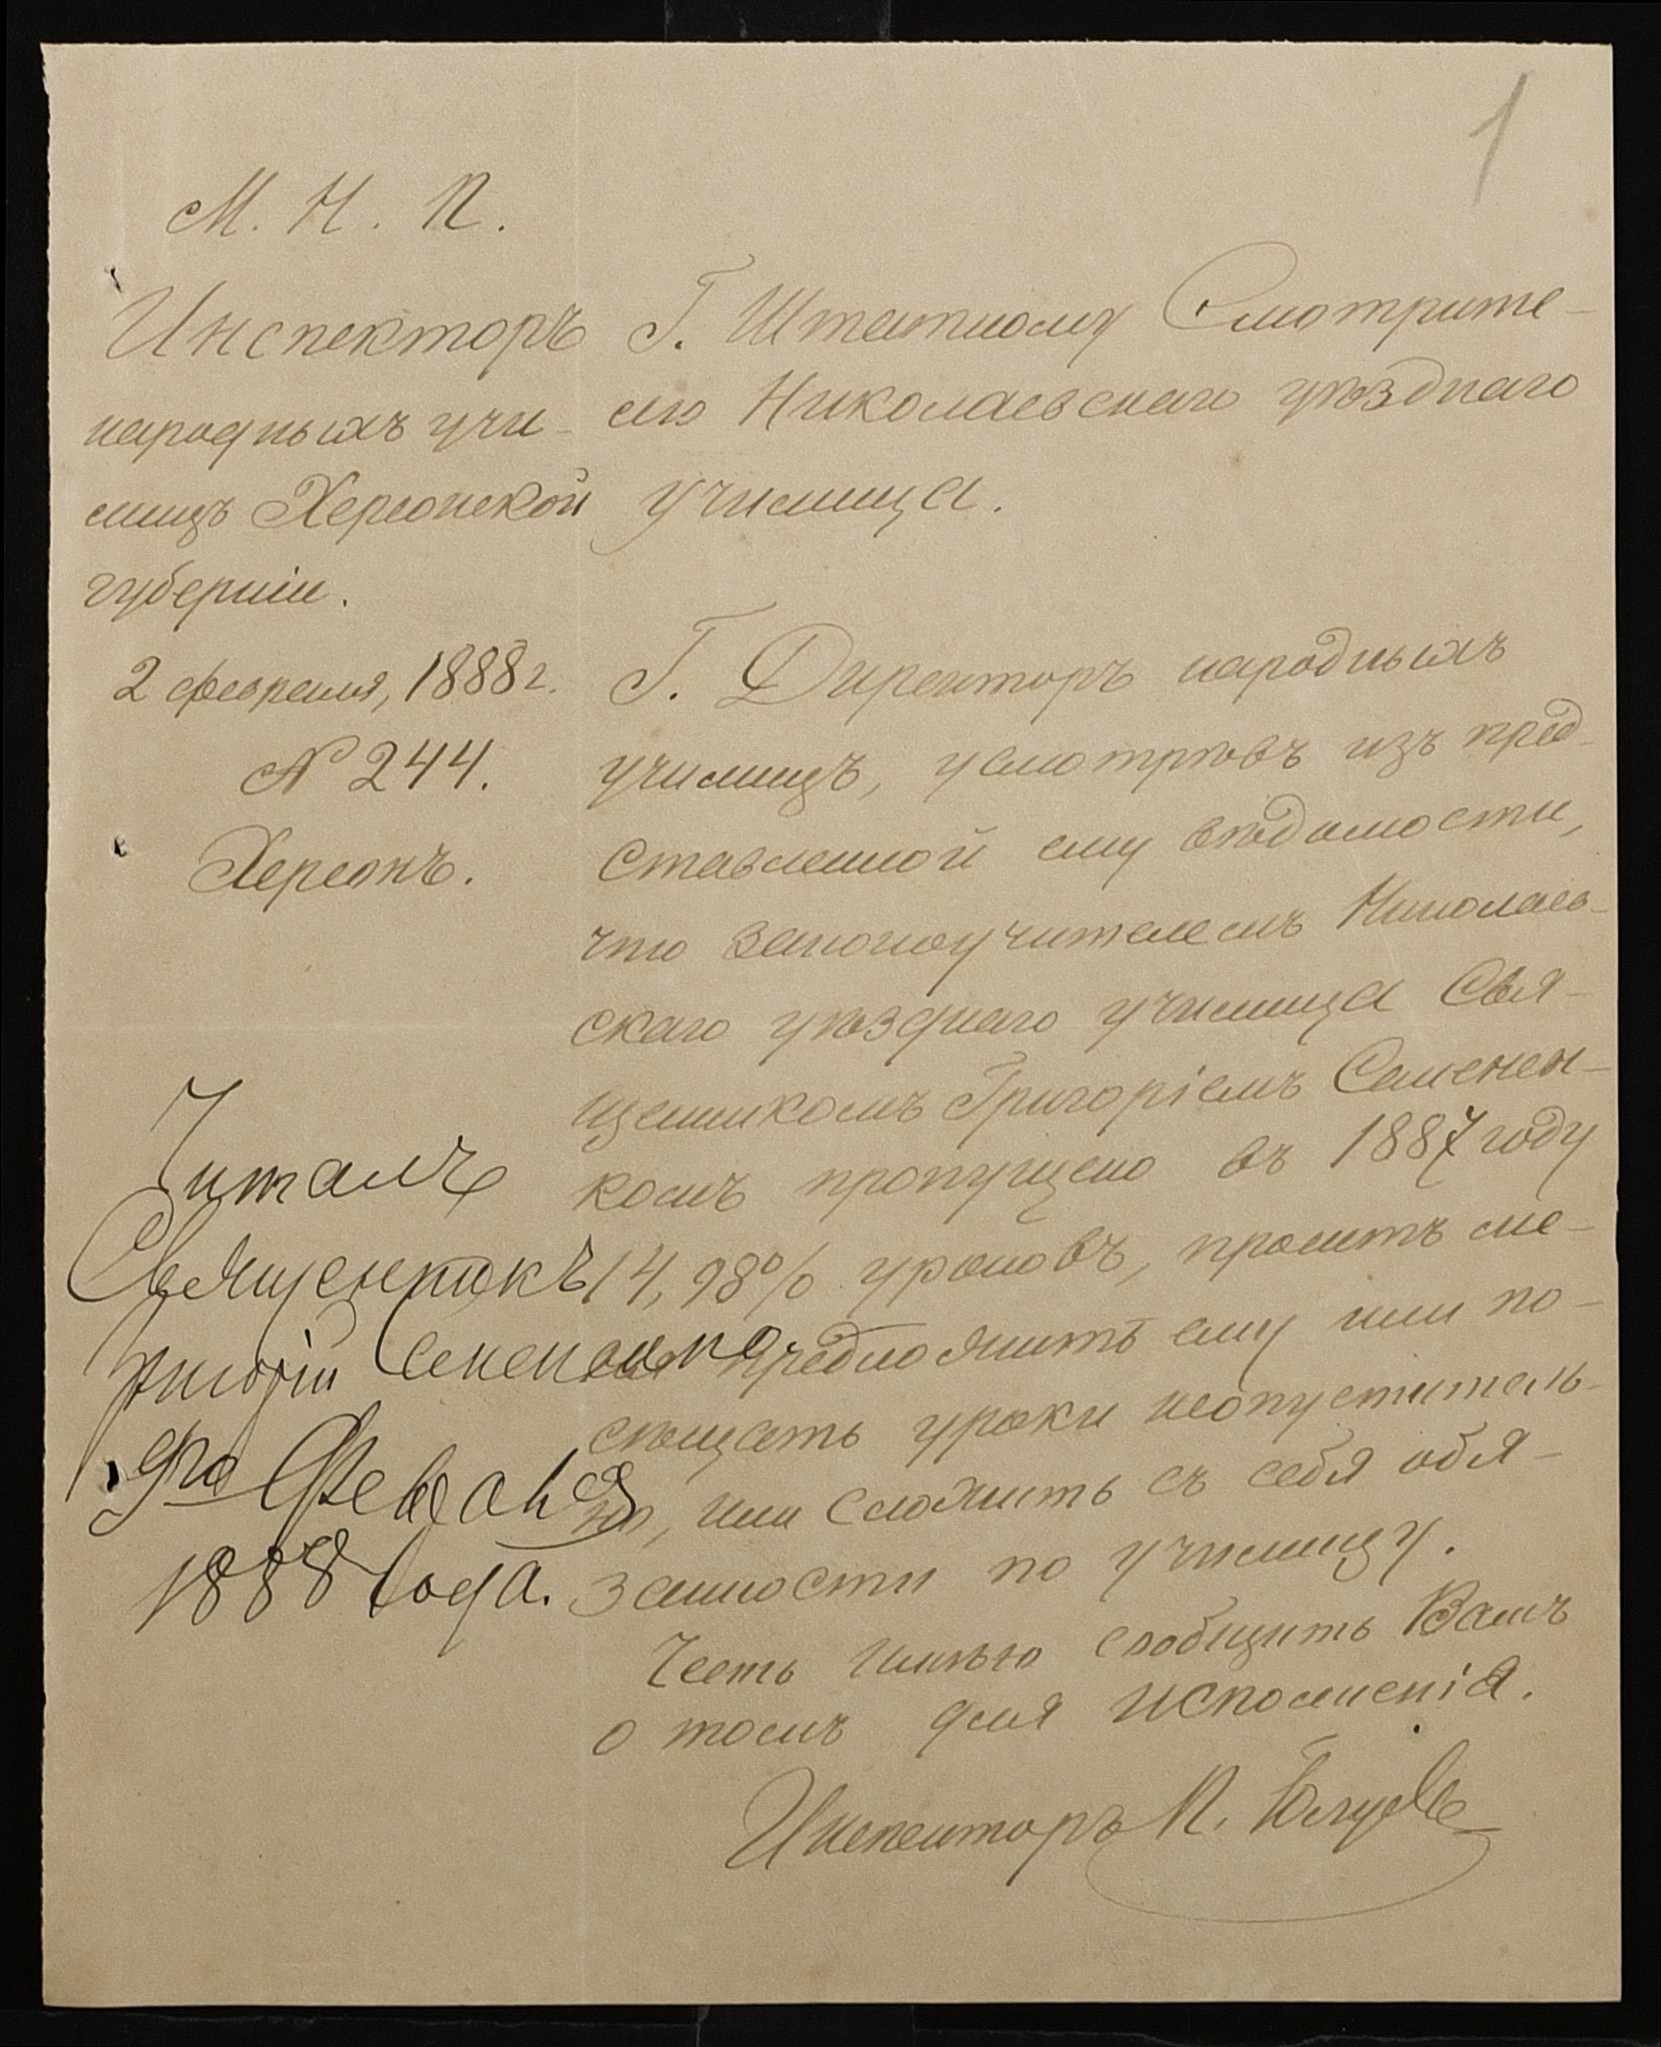 1
М. Н. П.
Инспекторъ
народныхъ учи-
лищъ Херсонской
губерніи.
2 февраля, 1888 г.
№ 244.
Херсонъ.
Г. Штатному Смотрите-
лю Николаевскаго уѣзднаго
училища.
Г. Директоръ народныхъ
училищъ, усмотрѣвъ изъ пред-
ставленной ему вѣдомости,
что законоучителемъ Николаев-
скаго уѣзднаго училища Свя-
щенникомъ Григоріемъ Семенен-
комъ пропущено въ 1887 году
14,98% уроковъ, проситъ ме-
ня предложить ему или по-
сѣщать уроки неопуститель-
но, или сложить съ себя обя-
занности по училищу.
Честь имѣю сообщить Вамъ
о томъ для исполненія.
Инспекторъ П.
Читалъ
Священникъ
Григорій Семененко
9го Февраля
1888 года.